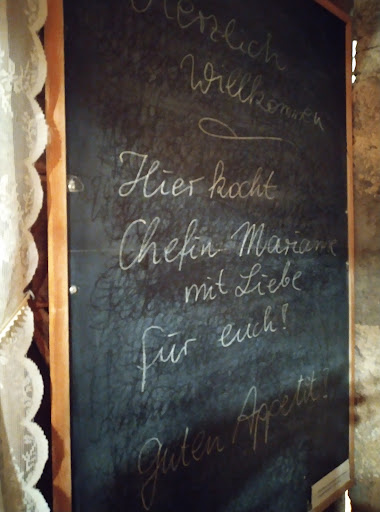 Herzlich
Willkommen
Hier kocht
Chefin Marianne
mit Liebe
für euch!
Guten Appetit!